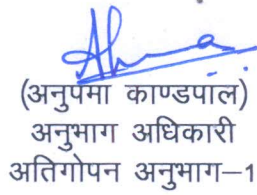 (अनुपमा काण्डपाल)
अनुभाग अधिकारी
अतिगोपन अनुभाग–1